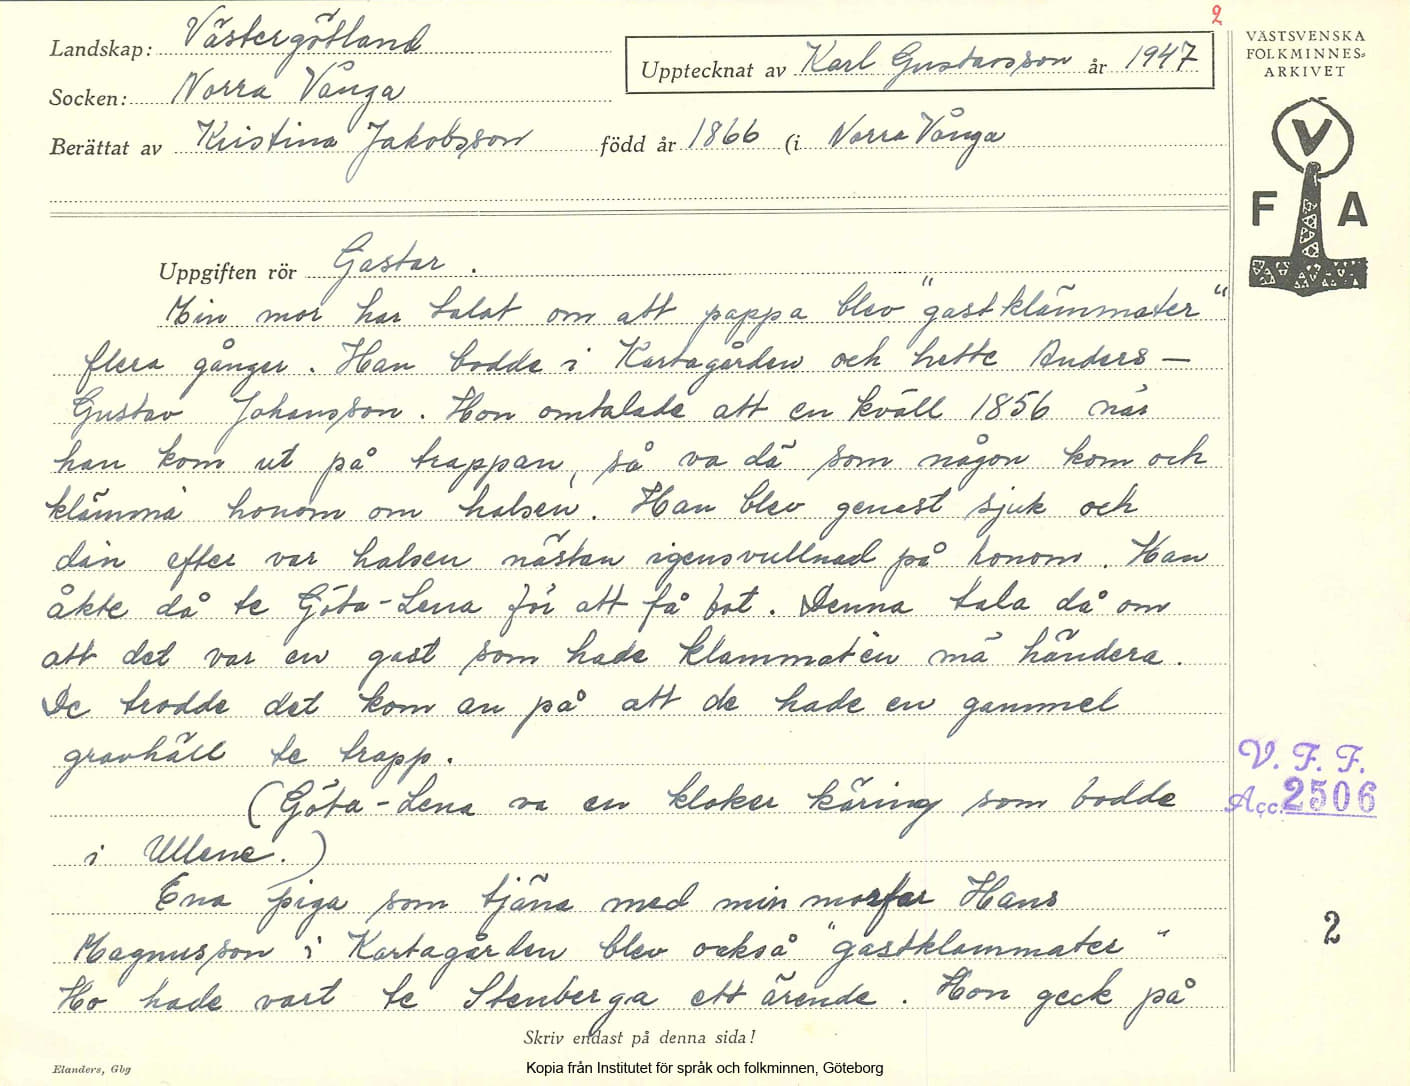 2
Landskap: Västergötland
Socken: Norra Vånga
Upptecknat av Karl Gustavsson år 1947
Berättat av Kristina Jakobsson född år 1866 (i Norra Vånga
VÄSTSVENSKA
FOLKMINNES-
ARKIVET
V
F A
Uppgiften rör Gastar.
Min mor har talat om att pappa blev "gastklämmater"
flera gånger. Han bodde i Kartagården och hette Anders-
Gustav Johansson. Hon omtalade att en kväll 1856 när
han kom ut på trappan, så va dä som någon kom och
klämmä honom om halsen. Han blev genast sjuk och
dän efter var halsen nästan igensvullnad på honom. Han
åkte då te Göta-Lena för att få bot. Denna tala då om
att det var en gast som hade klammat'en mä händera.
De trodde det kom an på att de hade en gammel
gravhäll te trapp.
(Göta-Lena va en kloker käring som bodde
i Ullene.)
Ena piga som tjäna med min morfar Hans
Magnusson i Kartagården blev också "gastklammater"
Ho hade vart te Stenberga ett ärende. Hon geck på
V. F. F.
Acc. 2506
2
Skriv endast på denna sida!
Elanders, Gbg
Kopia från Institutet för språk och folkminnen, Göteborg